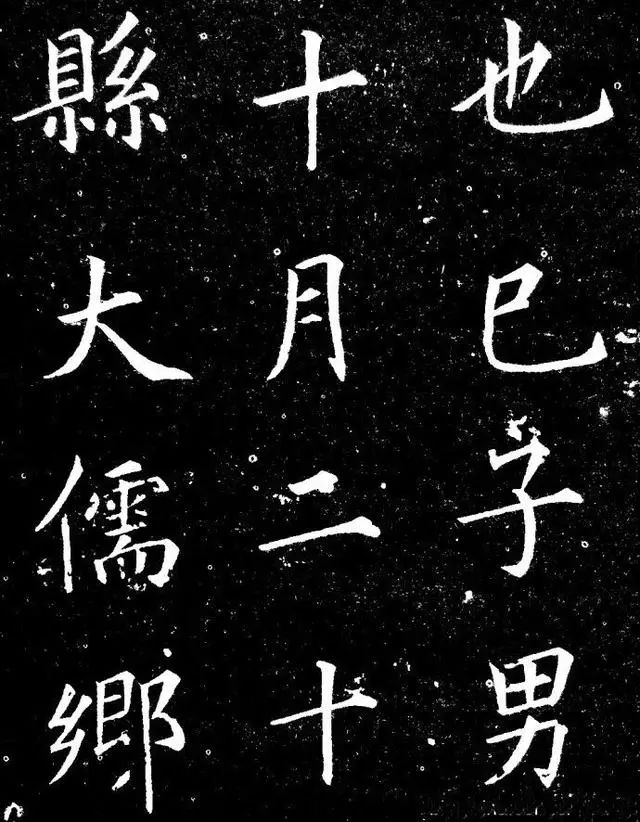 也巳子男
十月二十
縣大儒鄉